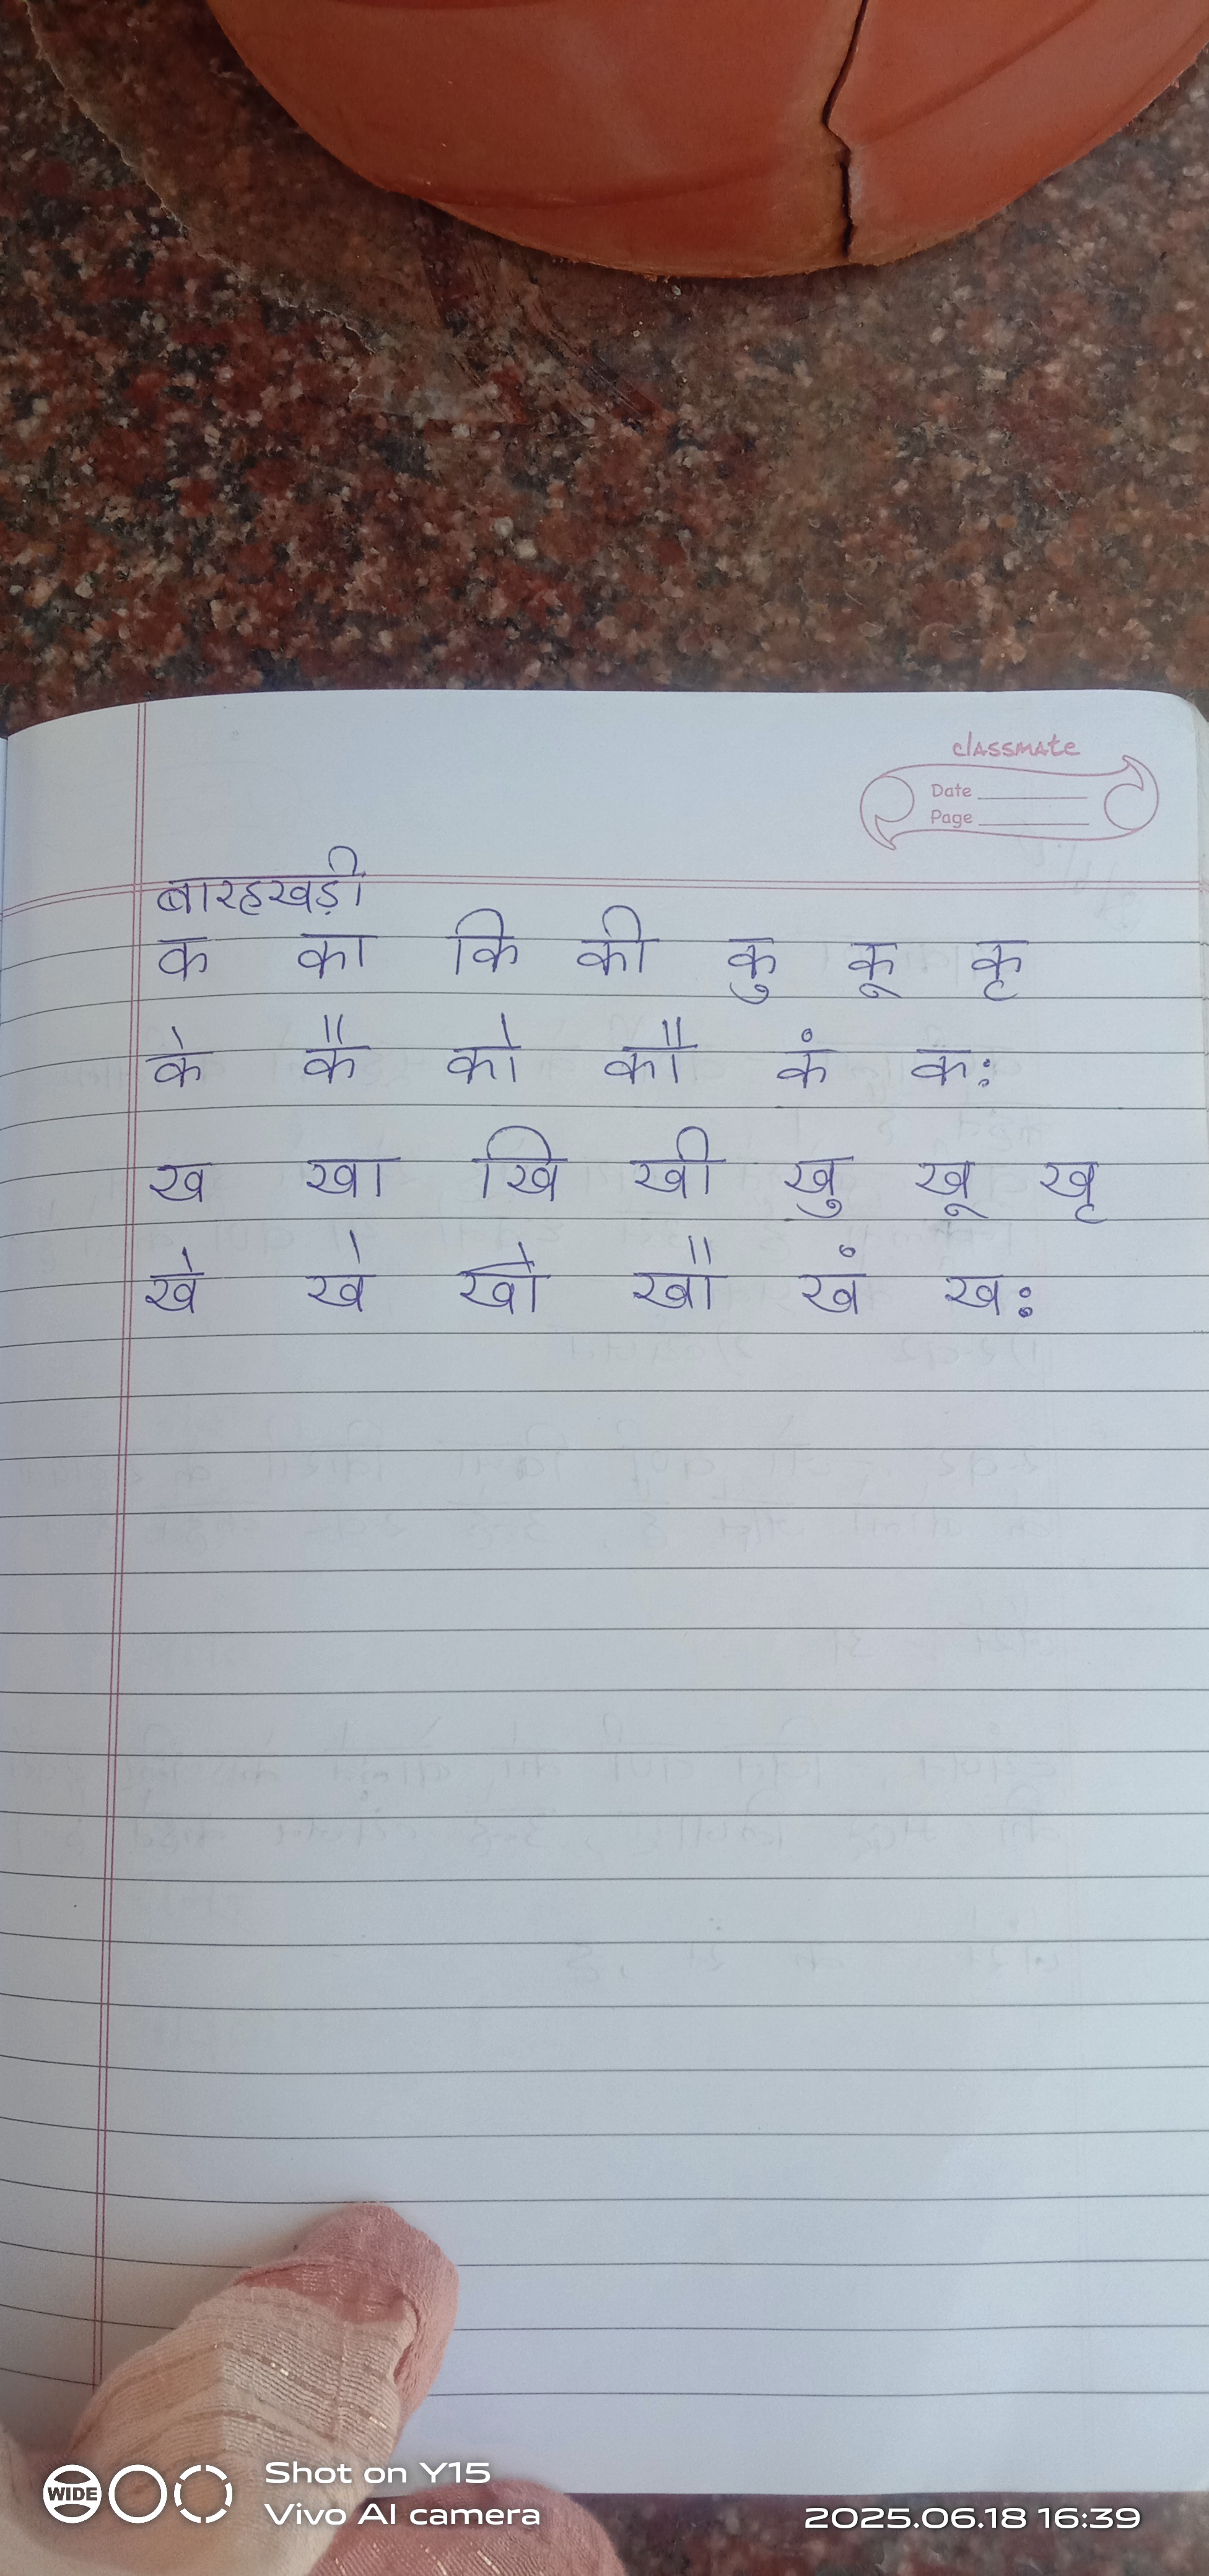 classmate
Date
Page
बारहखड़ी
क का कि की कु कू कृ
के कै को कौ कं कः
ख खा खि खी खु खू खृ
खे खे खो खौ खं खः
WIDE
Shot on Y15
Vivo AI camera
2025.06.18 16:39